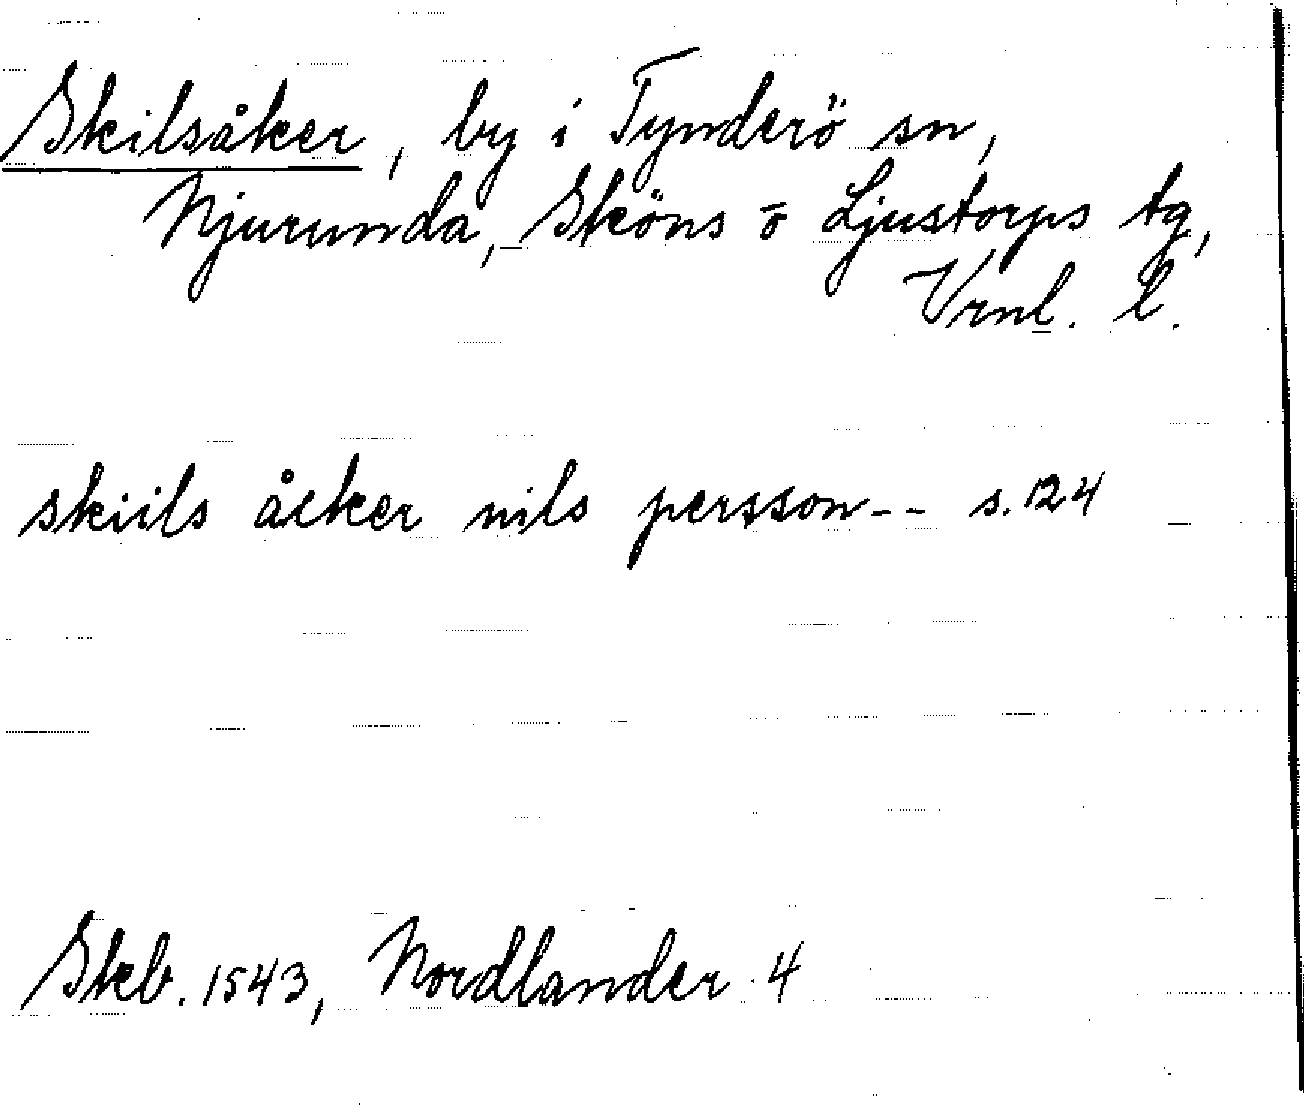 Skilsåker, by i Tynderö sn,
Njurunda, Sköns o Ljustorps tg,
Vrnl. l.
skiils åcker nils persson-- s. 124
Skb. 1543, Nordlander 4